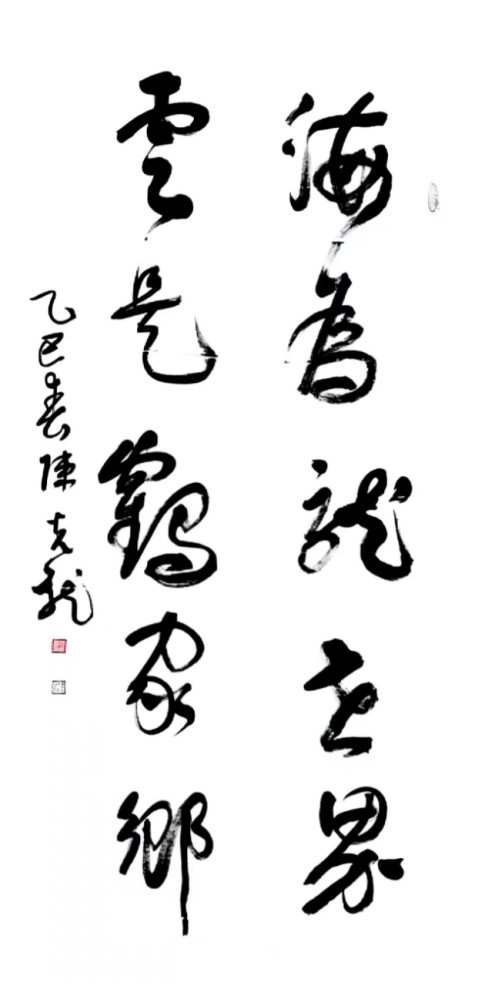 海为龙世界
雲是鶴家鄉
乙巳春陳克龍